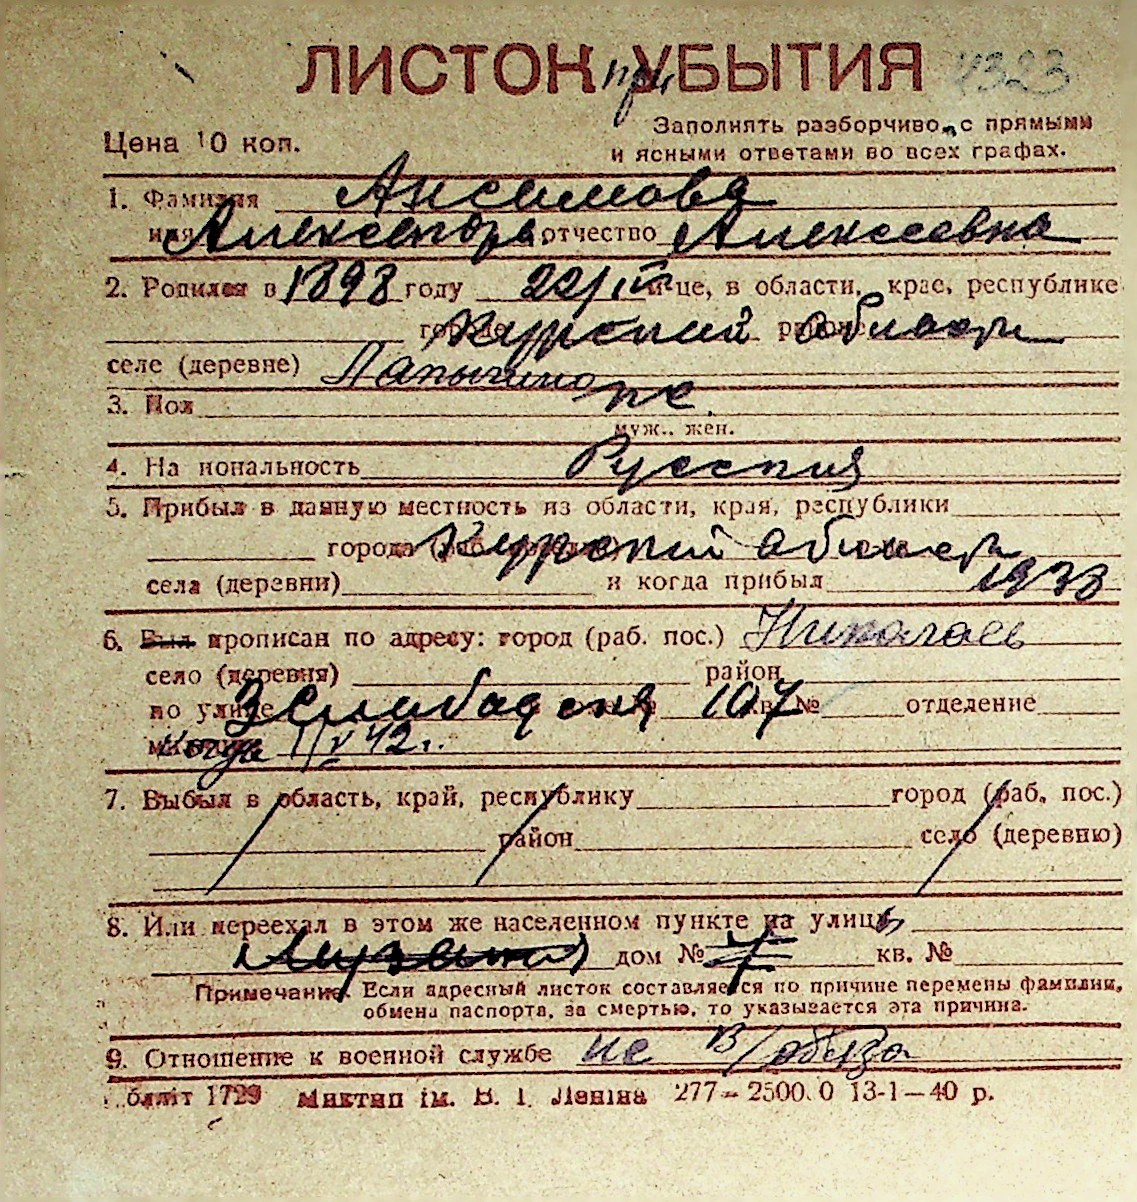 ЛИСТОК при УБЫТИЯ 4323
Цена 10 коп.
Заполнять разборчиво, с прямыми
и ясными ответами во всех графах.
1. Фамилия Ансимова
имя Александра отчество Алексеевна
2. Родился в 1898 году 22/IV м-це, в области, крае, республике
городе Курской районе области
селе (деревне) Лапыгино
3. Пол ж.
муж.. жен.
4. На иональность Русская
5. Прибыл в данную местность из области, края, республики
города Курской области
села (деревни) и когда прибыл 1933
6. Был прописан по адресу: город (раб. пос.) Николаев
село (деревня) район
по улице 3 Слободская 107 кв. № отделение
милиции когда 11/V 42 г.
7. Выбыл в область, край, республику город (раб. пос.)
район село (деревню)
8. Или переехал в этом же населенном пункте на улицу
дом № 7 кв. №
Примечание. Если адресный листок составляется по причине перемены фамилии,
обмена паспорта, за смертью, то указывается эта причина.
9. Отношение к военной службе не в/обяза
бліт 1729 Миктип ім. В. І. Леніна 277—2500.0 13-1—40 р.